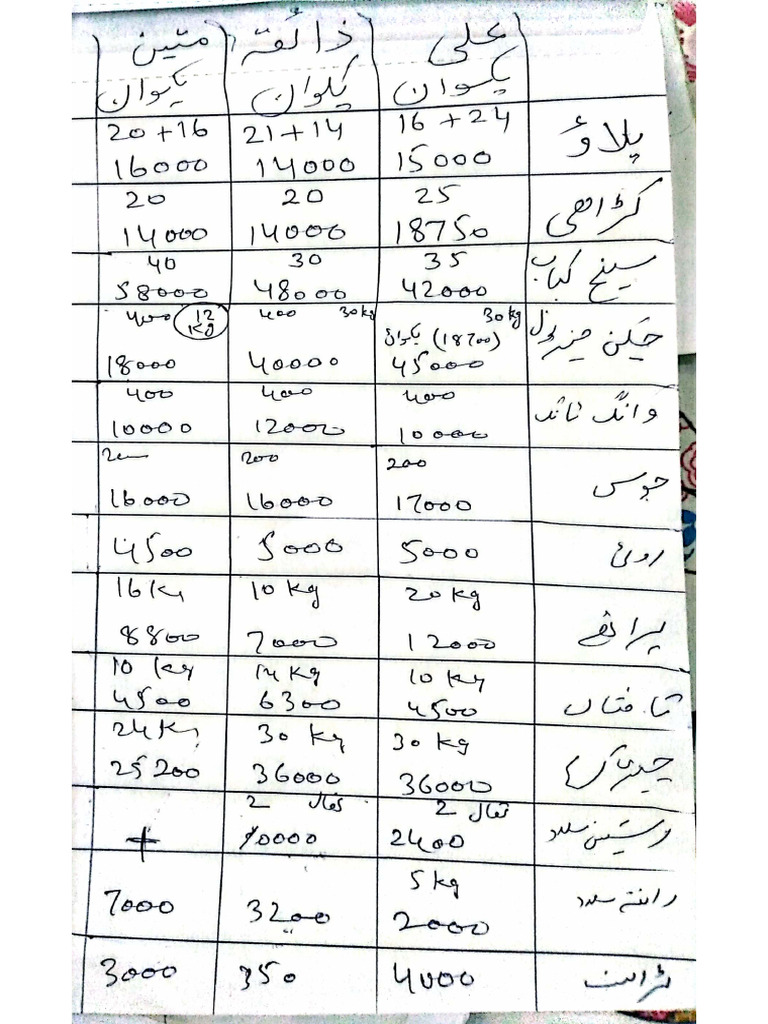 علی ذائقہ متین
پکوان پکوان پکوان
پلاؤ 16 + 24 21 + 14 20 + 16
15000 14000 16000
کڑاھی 25 20 20
18750 14000 14000
سیخ کباب 35 30 40
42000 48000 58000
چکن 30 kg 400 30 kg 400 12 kg
(18700) پکوان
45000 40000 18000
400 400 400
10000 12000 10000
جوس 200 200
17000 16000 16000
روٹی 5000 5000 4500
پراٹھے 20 kg 10 kg 16 K
12000 7000 8800
تافتان 10 kg 14 kg 10 kg
4500 6300 4500
30 kg 30 kg 24 K
36000 36000 25200
2 تھال 2 تھال
رشین سلاد 2400 10000 +
رائتہ سلاد 5 kg
2000 3200 7000
4000 350 3000